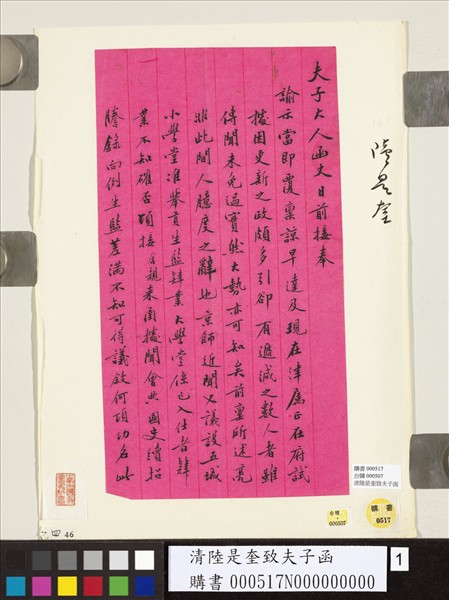 夫子大人函丈日前接奉
諭示當即覆稟諒早達及現在津屬正在府試
據因更新之政頗多引卻有遞減之數人者雖
傳聞未免過實然大勢亦可知矣前稟所述亮
非此間人臆度之辭也京師近聞又議設五城
小學堂准舉貢生監肄業大學堂係已入仕者肄
業不知確否頃接舍親來函據聞會典國史續招
謄錄向例生監差滿不知可得議敘何項功名此
陸是奎
購書 000517
台購 000507
清陸是奎致夫子函
台購
000507
購書
0517
四 46
清陸是奎致夫子函
購書 000517N000000000
1